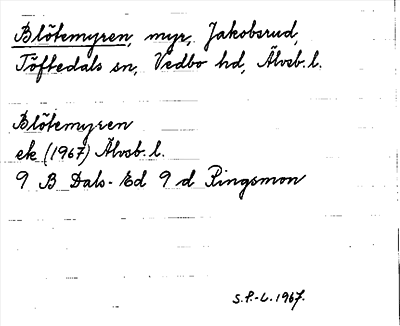 Blötemyren, myr, Jakobsrud,
Töftedals sn, Vedbo hd, Älvsb. l.
Blötemyren
ek (1967) Älvsb. l.
9 B Dals-Ed 9 d Ringsmon
S.P-L. 1967.